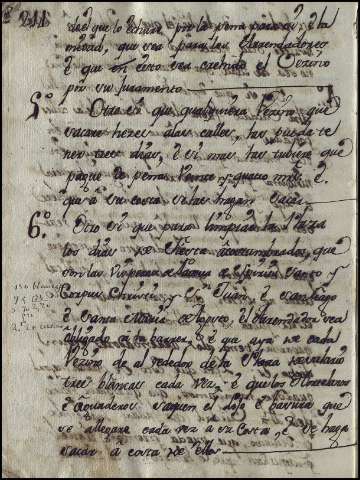 211
que lo echare por la pena para si, e la
mitad, que sea para los Arrendadores
é que en esto sea creido el Vezino
por su juramento
5º Otro si que qualquiera Vezino que
sacare hezes a las calles, las pueda te
ner tres dias, é si mas, las tubiere que
pague de pena Veinte y quatro mrs. é
que a su costa se las hagan sacar
6º Otro si que para limpiar la Plaza
los dias de fiesta acostumbrados, que
son las Visperas de Pascua de Spiritu Sancto y
Corpus Christi y Sn Juan, é Santiago
é Santa Maria de Agosto, el Arrendador sea
obligado a la barrer, é que aya de cada
Vezino de al rededor de la Plaza
tres blancas cada vez, é que los Hortelanos
é Aguaderos saquen el lodo é basura que
se allegare cada vez a su costa ó se haga
sacar a costa de ellos